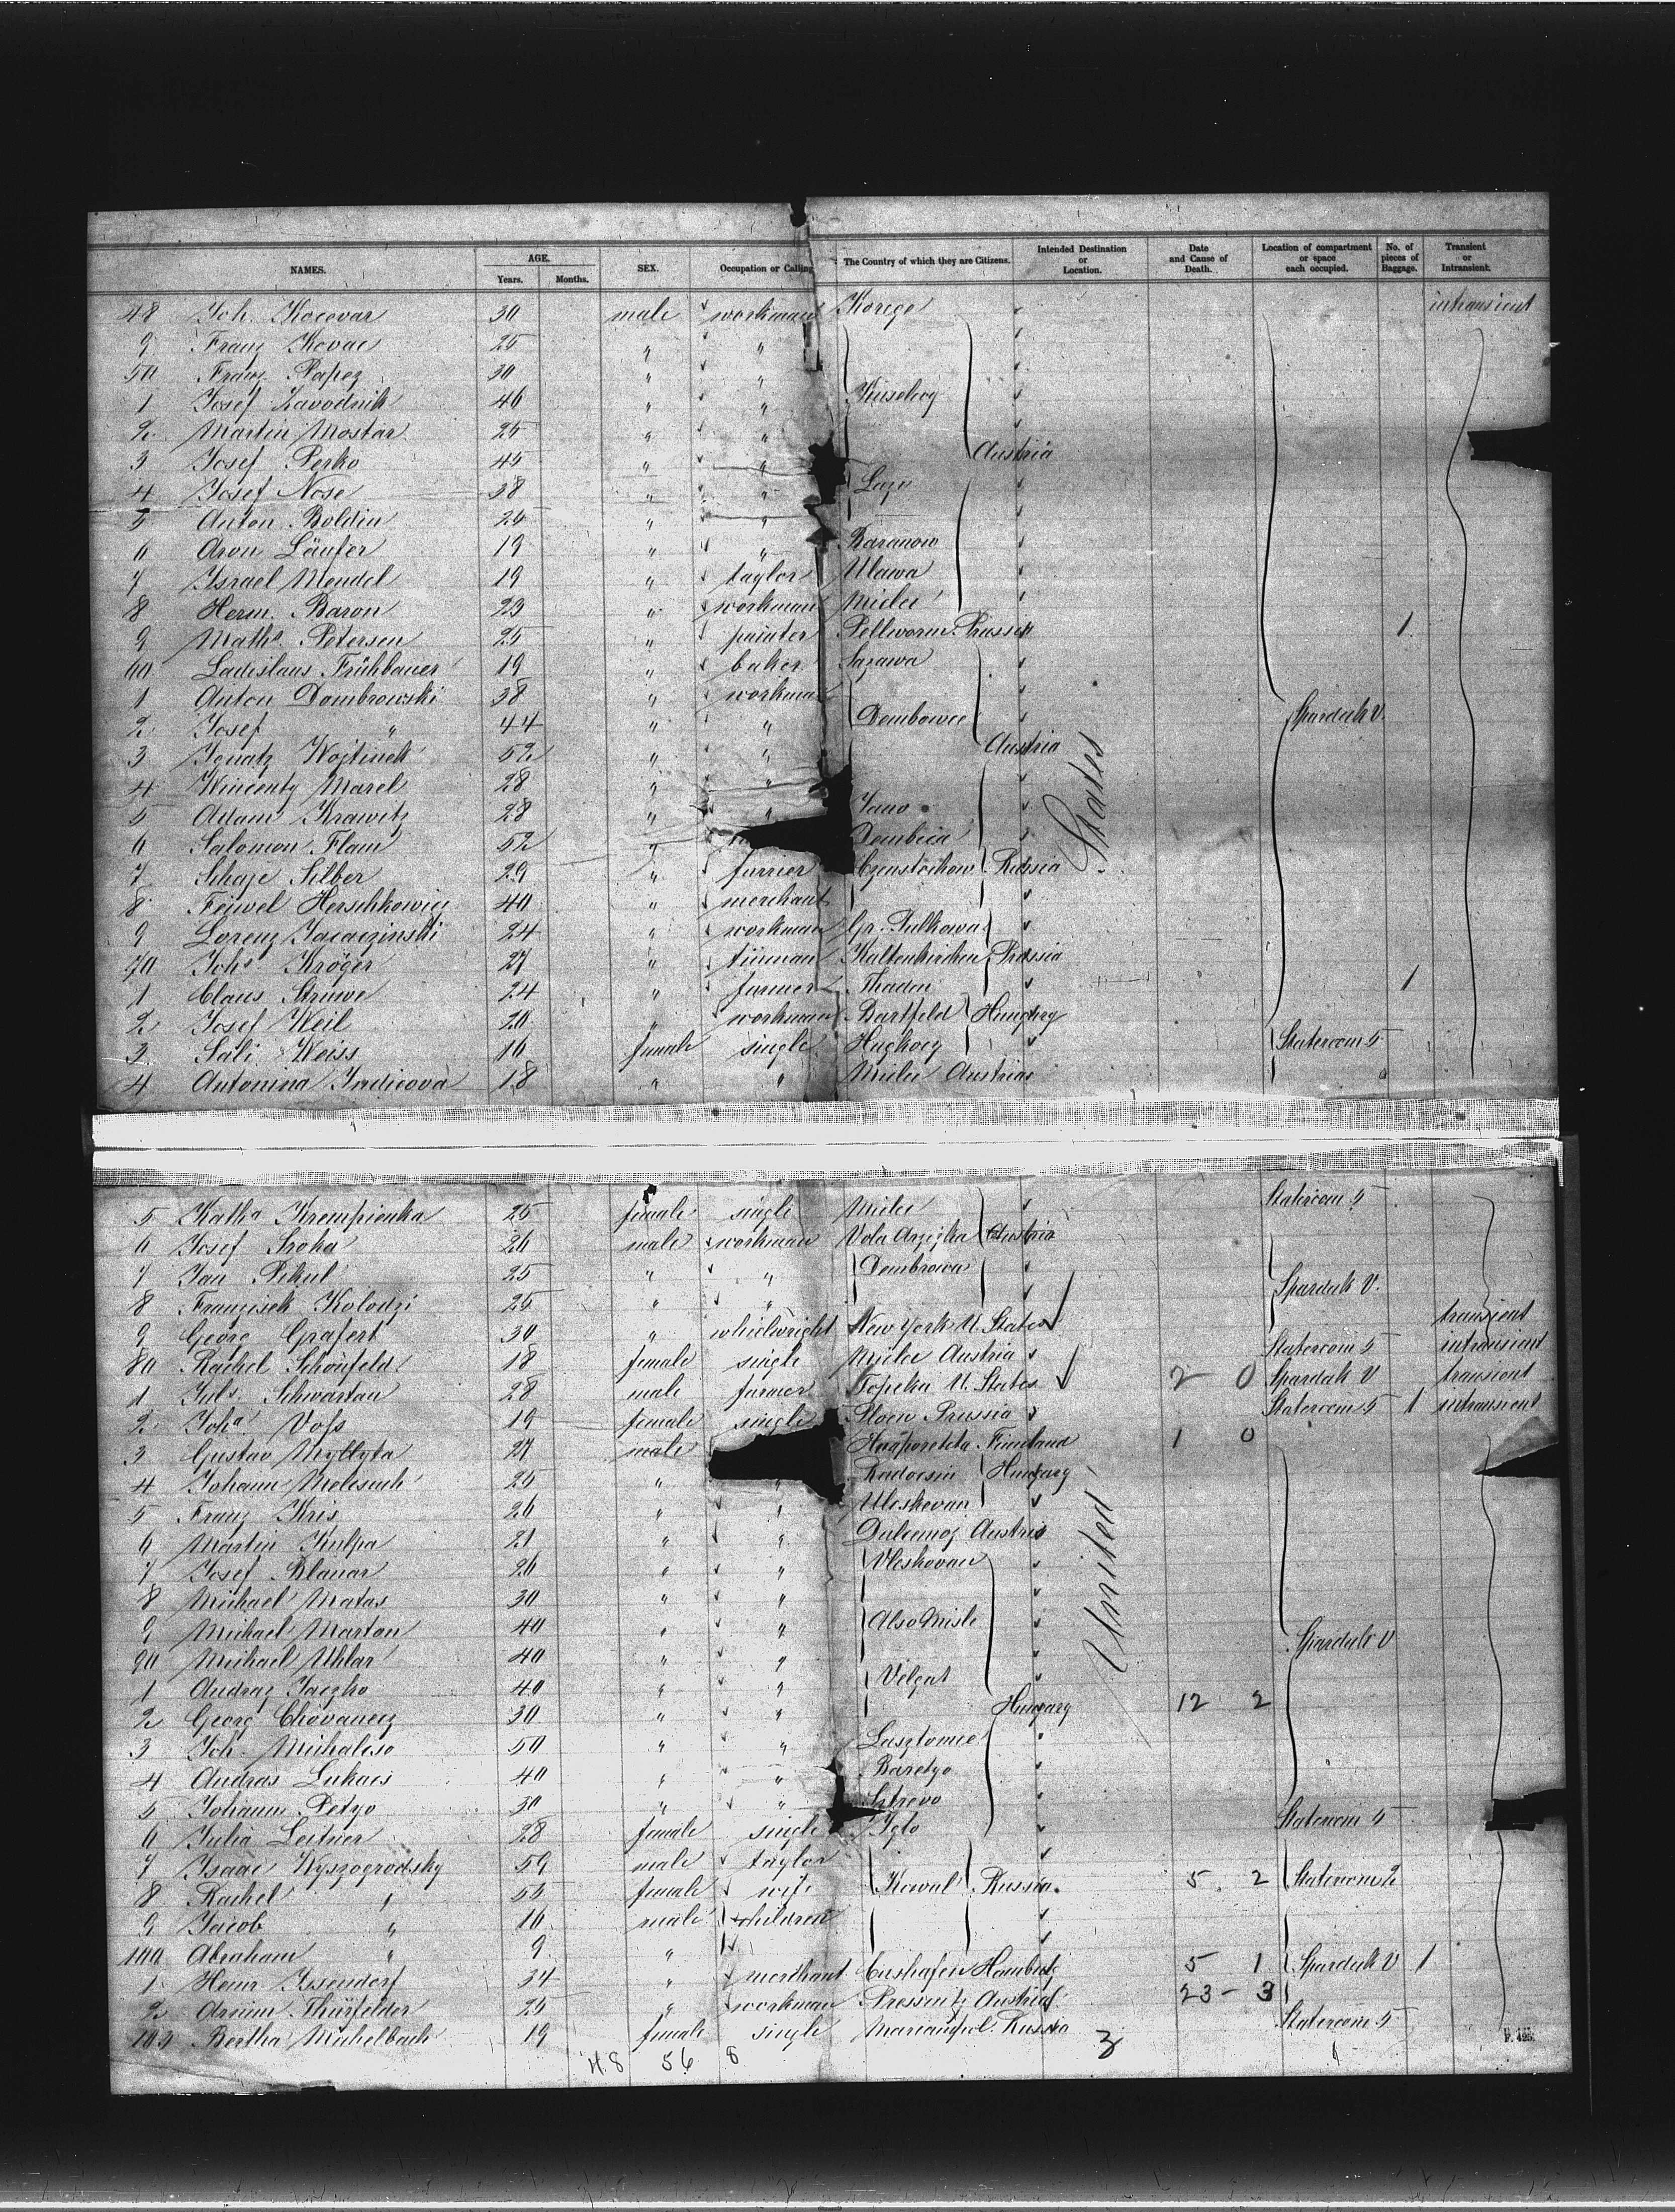 NAMES. AGE. Years. Months. SEX. Occupation or Calling The Country of which they are Citizens. Intended Destination or Location. Date and Cause of Death. Location of compartment or space each occupied. No. of pieces of Baggage. Transient or Intransient.
48 Joh. Kocovar 30 male workman intransient
9 Franz Kovac 25 " "
50 Franz Papez 30 " "
1 Josef Zavodnik 46 " "
2 Martin Mostar 25 " "
3 Josef Perko 45 " " Austria
4 Josef Nose 38 " "
5 Anton Boldin 26 " "
6 Aron Läufer 19 " " Baranow
7 Israel Mendel 19 " taylor
8 Herm. Baron 23 " workman Mielec
9 Maths Petersen 25 " painter Pellworm Prussia 1
60 Ladislaus Frühbauer 19 " baker
1 Anton Dombrowski 38 " workman
2 Josef " 44 " " Dembowice Spardeck V.
3 Ignatz Wojtinek 52 " " Austria
4 Wincenty Marel 28 " "
5 Adam Krawitz 28 " "
6 Salomon Flam 52 " Dembica
7 Schaje Silber 29 " furrier Czenstochow Russia
8 Feiwel Herschkowicz 40 " merchant
9 Lorenz 24 " workman
70 Johs Kröger 27 " tinman Kaltenkirchen Prussia
1 Claus Struwe 24 " farmer Thaden 1
2 Josef Weil 20 " workman Bartfeld Hungary
3 Sali Weiss 16 female single Stateroom 5
4 Antonina 18 " " Mielec Austria
States
5 Katha Krempienka 25 female single Mielec Stateroom 5
6 Josef Sroka 26 male workman Austria
7 Jan Pekul 25 " " Dembrowa
8 Franzisek Kolodzi 25 " " Spardeck V.
9 Georg Grafert 30 " whielwright New York U. States transient
80 Rachel Schönfeld 18 female single Mielec Austria Stateroom 5 intransient
1 Juls. Schwartau 28 male farmer Topeka U. States 2 0 Spardeck V transient
2 Joha. Voss 19 female single Ploen Prussia Stateroom 5 1 intransient
3 Gustav Myllyla 27 male Finnland 1 0
4 Johann 25 " " Hungary
5 Franz Kris 26 " "
6 Martin Kulpa 21 " " Austria
7 Josef Blanar 26 " "
8 Michael Matas 30 " "
9 Michael Marton 40 " " Also Misle
90 Michael Uhlar 40 " " Spardeck V
1 Andraz Jaczko 40 " "
2 Georg Chovanecz 30 " " Hungary 12 2
3 Joh. 50 " "
4 Andras Lukacs 40 " "
5 Johann Petyo 30 " "
6 Julia Leitner 28 female single Iglo Stateroom 5
7 Isaac Wyszogrodsky 59 male taylor
8 Rachel " 55 female wife Kowal Russia 5 2 Stateroom 2
9 Jacob " 16 male children
100 Abraham " 9 "
1 Heinr. Issendorf 34 " merchant Cuxhafen Hamburg 5 1 Spardeck V 1
2 Armin Thürfelder 25 " workman Austria 23 - 3
103 Bertha Muhelbach 19 female single Mariampol Russia Stateroom 5
United
48 56 8 3 1